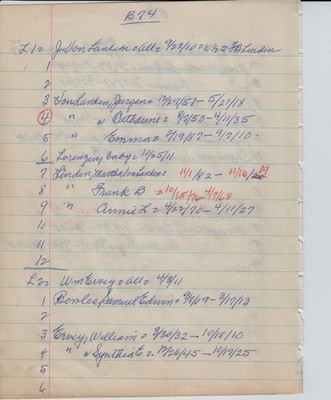 B74
L 1 = J. Von Lanken = all = 9/27/10 = W½ = FB Linden
1
2
3 Von Lanken, Jurgen = 12/27/51 - 5/21/18
4 " w Catharine = 9/2/53 - 4/11/35
5 " Emma = 2/19/87 - 9/2/10 -
6 Lorenzen, baby = 10/25/11
7 Linden, Martha Von Lanken = 11/1/82 - 11/16/19
8 " Frank B = 10/15/76 - 4/7/68
9 " Annie L = 4/22/70 - 4/11/27
10
11
12
L 2 = Wm Ervey = all = 4/3/11
1 Bowles, Samuel Edwin = 9/8/09 - 3/17/13
2
3 Ervey, William = 3/30/32 - 10/18/10
4 " w Synthia E = 12/26/45 - 10/17/25
5
6